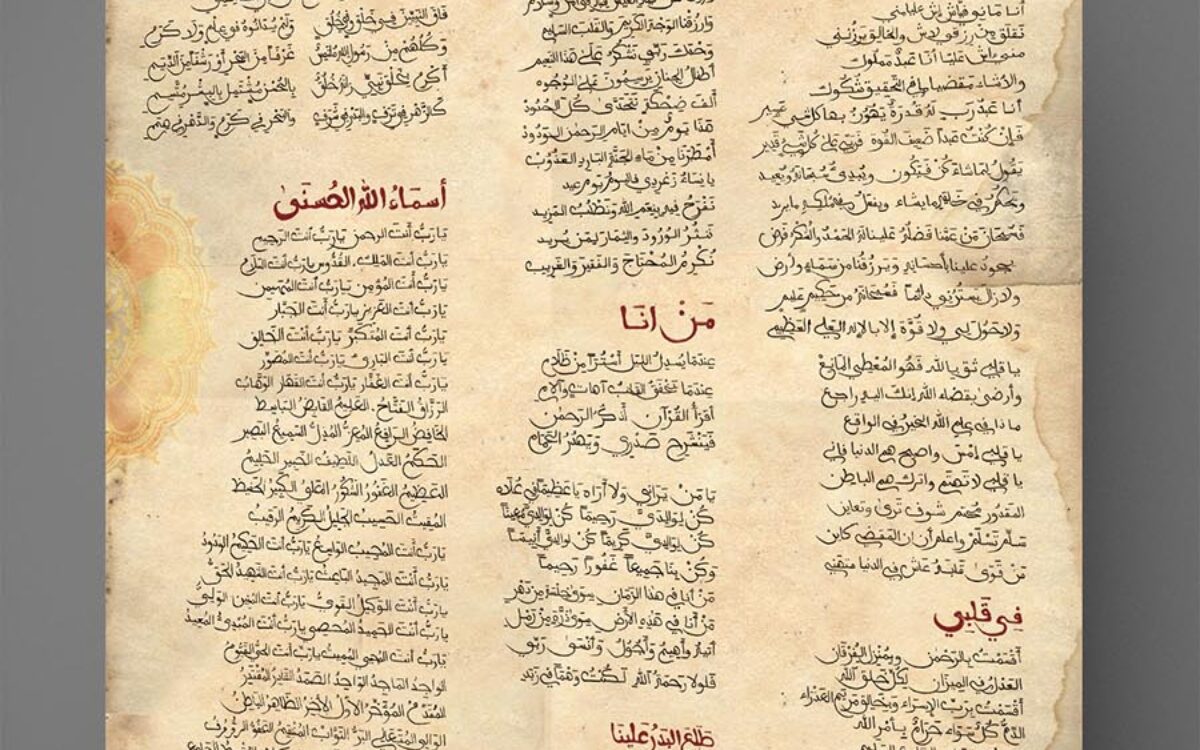 أنا ما نو فياش إش عليا مني
نقلق من رزقي لاش والخالق يرزقني
مني باش علينا أنا عبد مملوك
والأشياء مقضيا ما في التحقيق شكوك
أنا عبد رب له قدرة يهون بها كل شيء عسير
فإن كنت عبدا ضعيف القوة فربي على كل شيء قدير
يقول لما شاء كن فيكون ويبدئ سبحانه ويعيد
ويحكم في خلقه ما يشاء ويفعل في ملكه ما يريد
فسبحان من عمنا فضله علينا له الحمد والشكر فرض
يجود علينا بأحسانه ويرزقنا من سماء وأرض
ولا زال يسترني دائما فسبحانه من حكيم عليم
ولا حول لي ولا قوة إلا بالإله العلي العظيم
يا قلبي ثق بالله فهو المعطي المانع
وأرضى بقضاء الله إنك اليه راجع
ما ذا في علم الله الخير في الواقع
يا قلبي امش واصبح هم الدنيا فاني
يا قلبي لا تهتم واترك هم الباطن
المقدور محتم شوف ترى وتعاين
سلم تسلم واعلم أن المقضي كاين
من قوى قلبه عاش في الدنيا متهني
في قلبي
أقسمت بالرحمن وبمنزل الفرقان
العدل في الميزان لكل خلق الله
أقسمت برب الإسراء وبخالق مريم العذراء
الدم كل سواء حرام يأمر الله
وارزقنا الوجه الكريم والقلب السليم
وحقك ربي نشكره على هذا النعيم
أطفال الجنان يرسمون على الوجوه
ألف ضحكة تتحدى كل الحدود
هذا يوم من ايام الرحمن الودود
أمطرنا من ماء الجنة البارد العذوب
يا نساء زغردي فاليوم يوم عيد
نفرح فيه بنعم الله ونطلب المزيد
ننثر الورود والثمار لمن يريد
نكرم المحتاج والفقير والغريب
من انا
عندما يسدل الليل أستارا من ظلام
عندما تخفق القلب آهات وآلام
أقرأ القرآن أذكر الرحمن
فينشرح صدري ويهطر الغمام
يا من يراني ولا أراه يا عظيما في علاه
كن لوالدي رحيما كن لوالدي معينا
كن لوالدي كريما كن لوالدي أنيسا
وكن بنا جميعا غفورا رحيما
من أنا في هذا الزمان سوى لحظة من دهر
من أنا في هذه الأرض سوى ذرة من رمل
أتياه وأهيم وأحول وأنسى ربي
فلولا رحمة الله لكنت وهنا في زبد
طلع البدر علينا
فاق النبيين في خلق وفي خلق ولم يدانوه في علم ولا كرم
وكلهم من رسول الله ملتمس غرفا من البحر أو رشفا من الديم
أكرم بخلق نبي زانه خلق بالحسن مشتمل بالبشر متسم
كالزهر في ترف والبدر في شرف والبحر في كرم والدهر في همم
أسماء الله الحسنى
يا رب أنت الرحمن يا رب أنت الرحيم
يا رب أنت الملك، القدوس يا رب أنت السلام
يا رب أنت المؤمن يا رب أنت المهيمن
يا رب أنت العزيز يا رب أنت الجبار
يا رب أنت المتكبر يا رب أنت الخالق
يا رب أنت البارئ يا رب أنت المصور
يا رب أنت الغفار يا رب أنت القهار الوهاب
الرزاق الفتاح، العليم القابض الباسط
الخافض الرافع المعز المذل السميع البصير
الحكم العدل اللطيف الخبير الحليم
العظيم الغفور الشكور العلي الكبير الحفيظ
المقيت الحسيب الجليل الكريم الرقيب
يا رب أنت المجيب الواسع يا رب أنت الحكيم الودود
يا رب أنت المجيد الباعث يا رب أنت الشهيد الحق
يا رب أنت الوكيل القوي يا رب أنت المتين الولي
يا رب أنت الحميد المحصي يا رب أنت المبدئ المعيد
يا رب أنت المحيي المميت يا رب أنت الحي القيوم
الواجد الماجد الواحد الصمد القادر المقتدر
المقدم المؤخر الأول الآخر الظاهر الباطن
الوالي المتعالي البر التواب المنتقم العفو الرؤوف